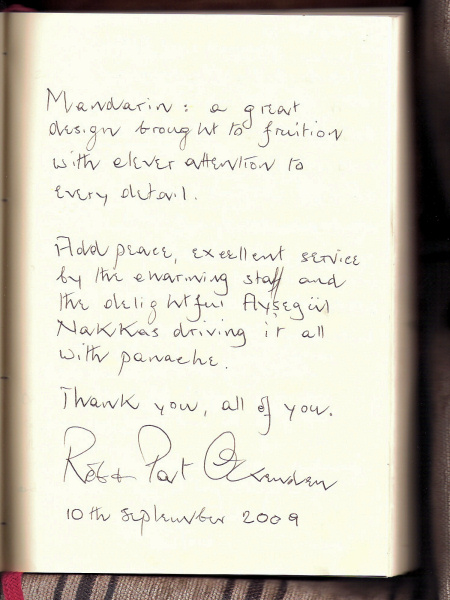 Mandarin: a great
design brought to fruition
with clever attention to
every detail.
Add peace, excellent service
by the charming staff and
the delightful Ayşegül
Nakkas driving it all
with panache.
Thank you, all of you.
Pat
10th September 2009